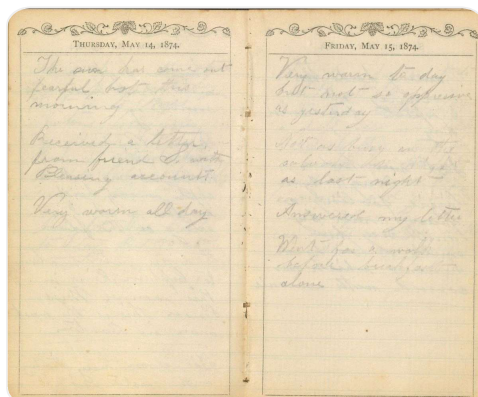 THURSDAY, MAY 14, 1874.
The sun has come out
fearful hot this
morning
Received a letter
from friend S with
Pleasing account
Very warm all day
FRIDAY, MAY 15, 1874.
Very warm to day
but not so oppressive
as yesterday
Not as busy in the
as last night
Answered my letter
Went for a walk
before
alone